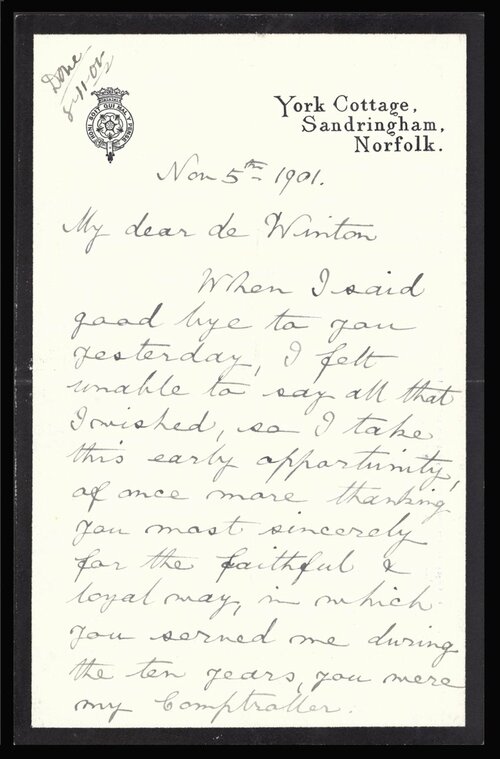 Done
8-11-02
HONI SOIT QUI MAL Y PENSE
York Cottage,
Sandringham,
Norfolk.
Nov 5th 1901.
My dear de Winton
When I said
good bye to you
yesterday, I felt
unable to say all that
I wished, so I take
this early opportunity,
of once more thanking
you most sincerely
for the faithful &
loyal way, in which
you served me during
the ten years, you were
my Comptroller.